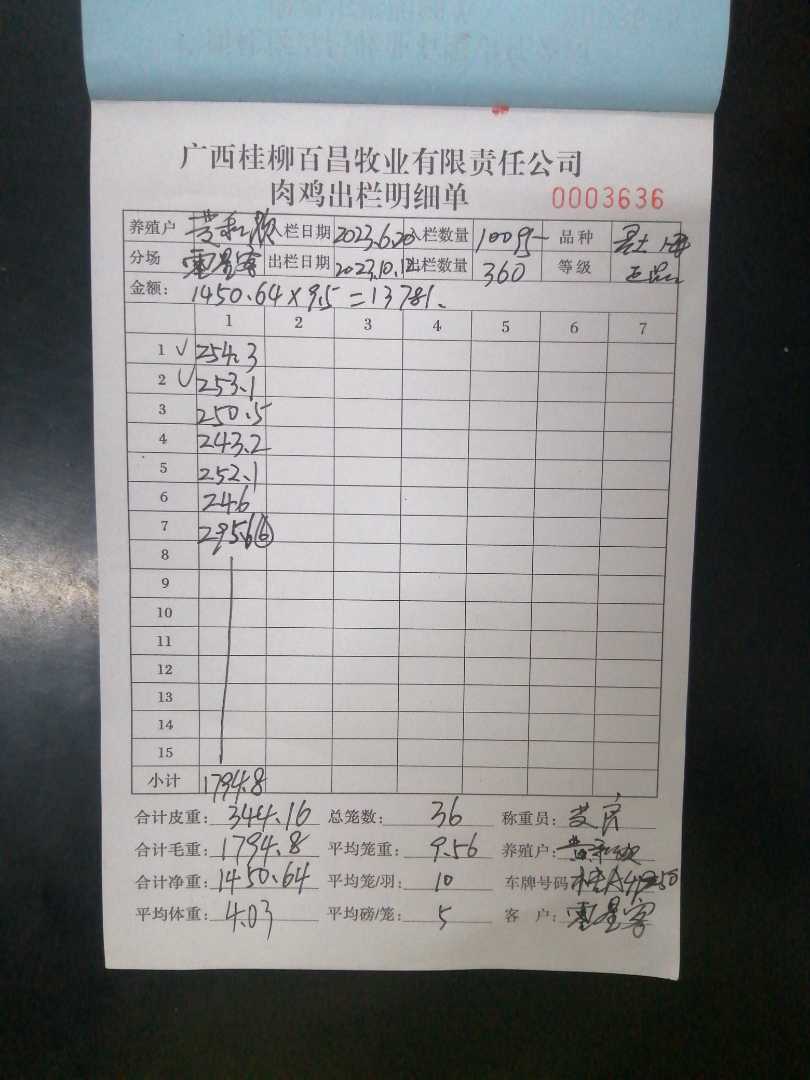 广西桂柳百昌牧业有限责任公司
肉鸡出栏明细单 0003636
养殖户 入栏日期 2023.6.20 入栏数量 品种
分场 出栏日期 2023.10.12 出栏数量 360 等级 正品
金额： 1450.64×9.5=13781.
1 2 3 4 5 6 7
1 ✓ 254.3
2 ✓ 253.1
3 250.5
4 243.2
5 252.1
6 246
7 295.6 ⑥
8
9
10
11
12
13
14
15
小计 1794.8
合计皮重： 344.16 总笼数： 36 称重员：
合计毛重： 1794.8 平均笼重： 9.56 养殖户：
合计净重： 1450.64 平均笼/羽： 10 车牌号码
平均体重： 4.03 平均磅/笼： 5 客 户：